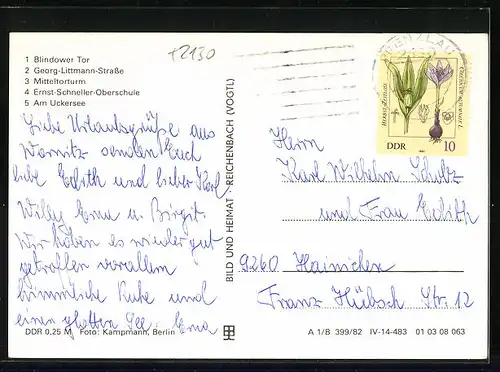 +2130
1 Blindower Tor
2 Georg-Littmann-Straße
3 Mitteltorturm
4 Ernst-Schneller-Oberschule
5 Am Uckersee
Liebe Urlaubsgrüße aus
Warnitz senden Euch
liebe Edith und lieber Karl.
Willy Erna u. Birgit.
Wir haben es wieder gut
getroffen vorallem
himmlische Ruhe und
einen glatten See. Erna
DDR 0,25 M Foto: Kampmann, Berlin
BILD UND HEIMAT REICHENBACH (VOGTL)
DDR
10
Herrn
Karl Wilhelm Schulz
und Frau Edith
9260 Hainichen
Franz Hübsch Str. 12
A 1/B 399/82 IV-14-483 01 03 08 063